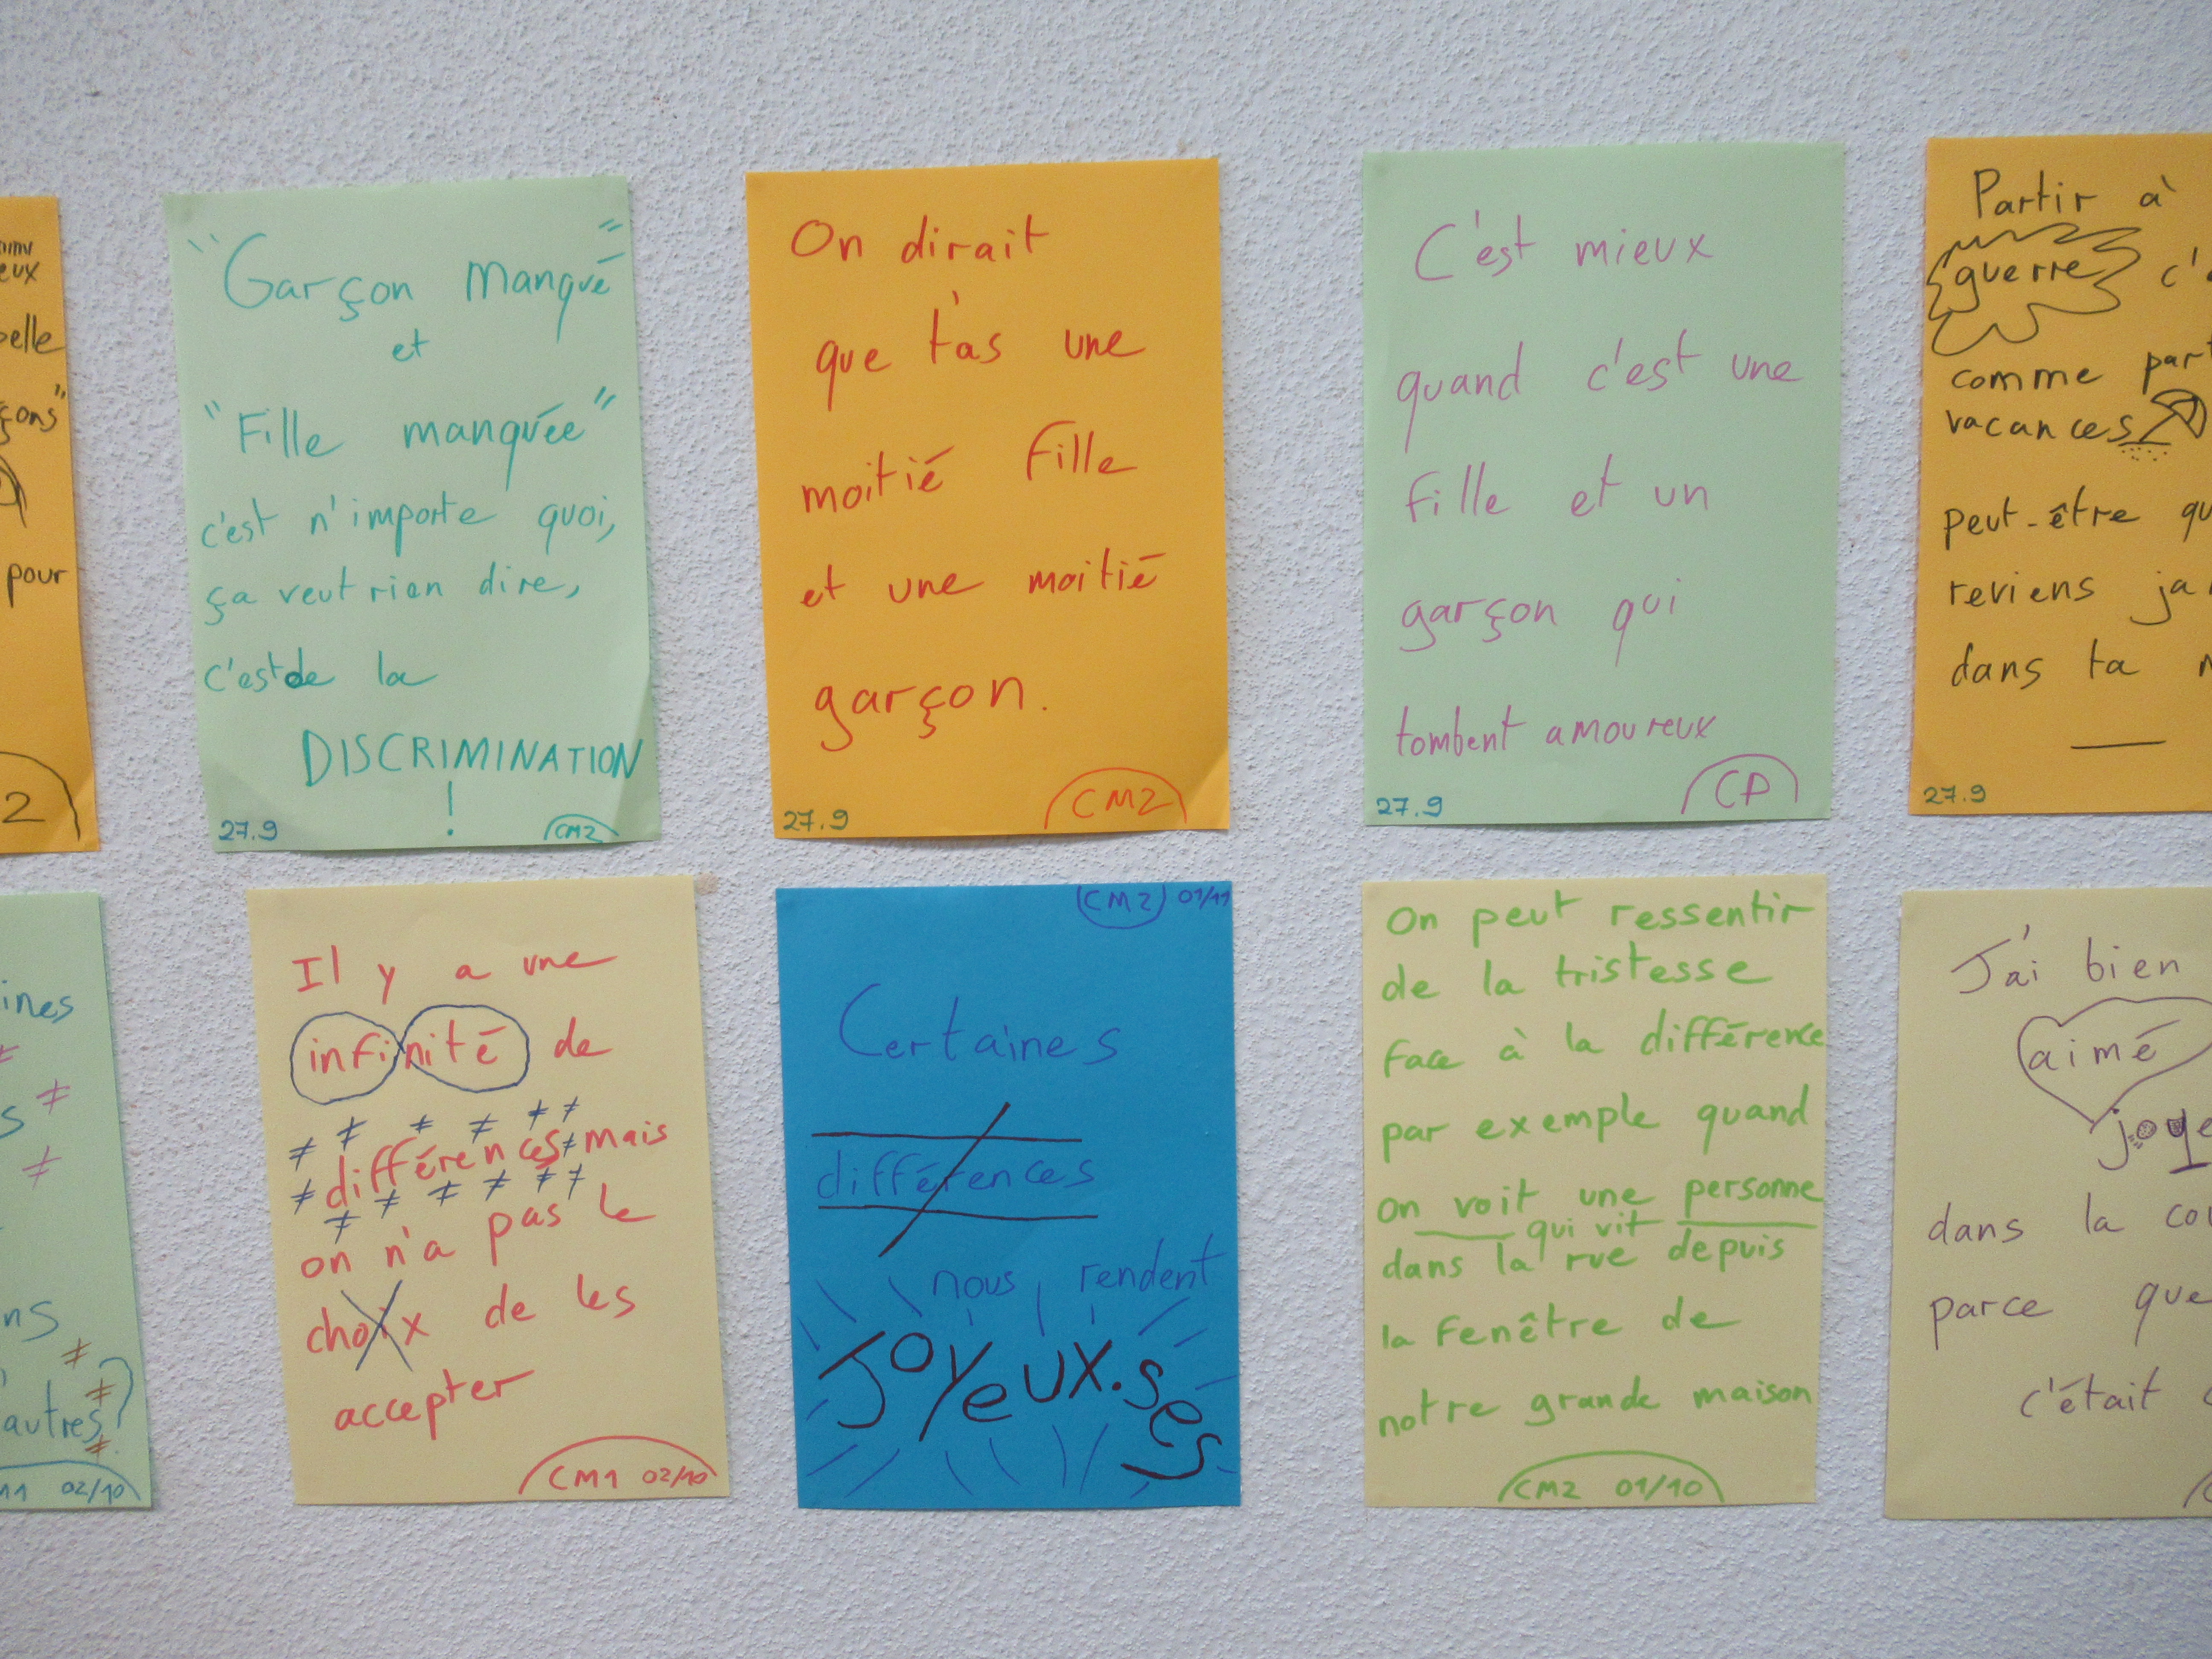 eux
pelle
çons"
pour
2
"Garçon manqué"
et
"Fille manquée"
c'est n'importe quoi,
ça veut rien dire,
c'est de la
DISCRIMINATION
!
27.9 CM2
On dirait
que t'as une
moitié fille
et une moitié
garçon.
27.9 CM2
C'est mieux
quand c'est une
fille et un
garçon qui
tombent amoureux
27.9 CP
Partir à
guerre c'
comme par
vacances
peut-être qu
reviens ja
dans ta
27.9
ines
≠
s ≠
≠
ns
≠
autres, ?
≠
≠
M1 02/10
Il y a une
infinité de
≠ ≠ ≠ ≠ ≠ ≠
différences ≠ mais
≠ ≠ ≠ ≠ ≠ ≠ ≠
on n'a pas le
choix de les
accepter
CM1 02/10
CM2 01/11
Certaines
différences
nous rendent
Joyeux.ses
On peut ressentir
de la tristesse
face à la différence
par exemple quand
on voit une personne
qui vit
dans la rue depuis
la fenêtre de
notre grande maison
CM2 01/10
J'ai bien
aimé
joye
dans la cou
parce que
c'était